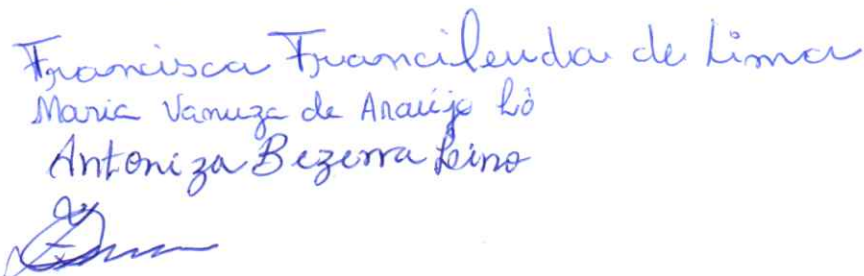 Francisca Francileuda de Lima
Maria Vanuza de Araújo Ló
Antoniza Bezerra Lino